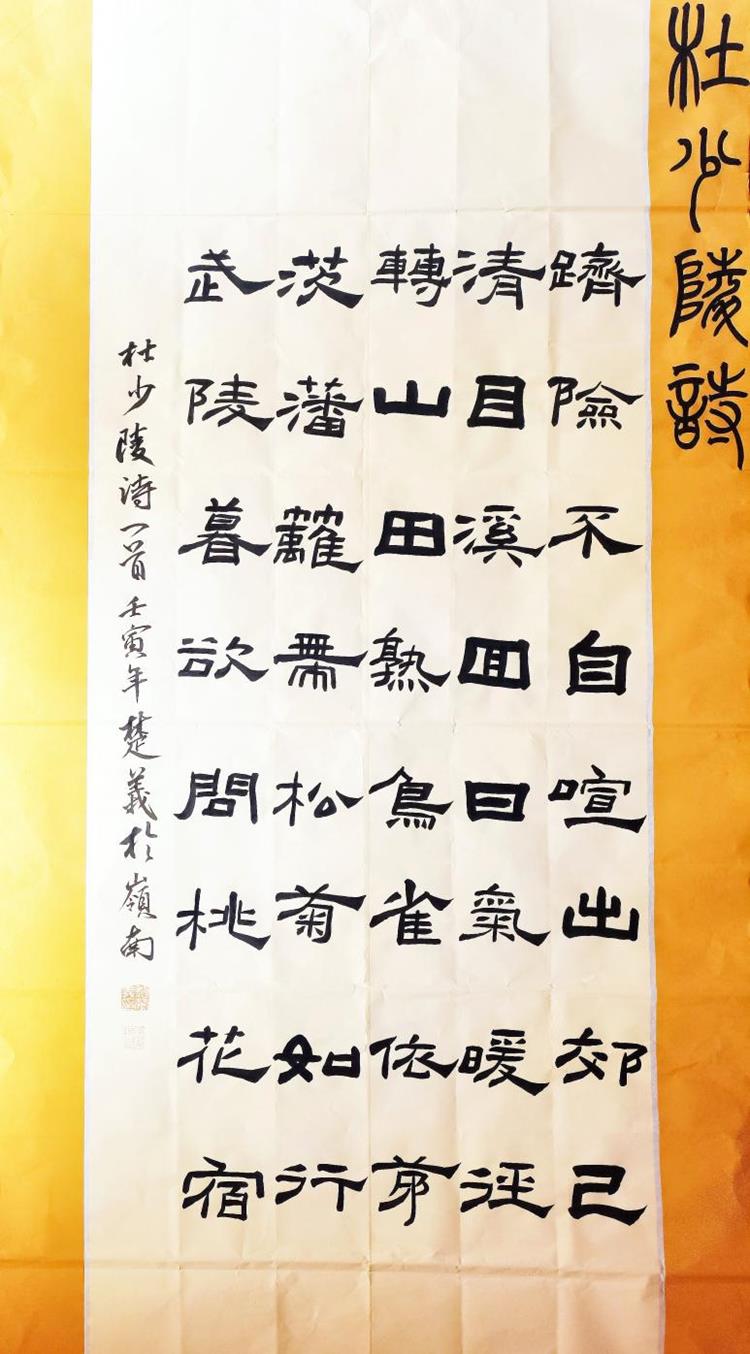 杜少陵詩
躋險不自喧出郊已
清目溪回日氣暖徑
轉山田熟鳥雀依茅
茨藩籬帶松菊如行
武陵暮欲問桃花宿
杜少陵诗一首壬寅年楚義於嶺南